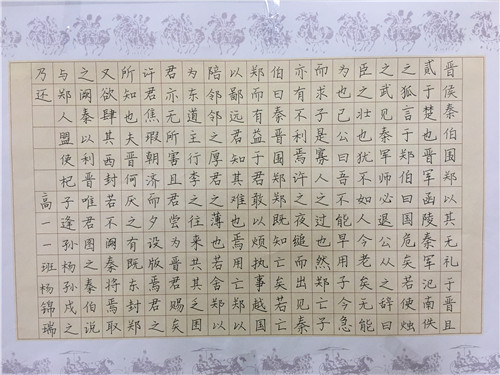 晋侯秦伯围郑以其无礼于晋且
贰于楚也晋军函陵秦军汜南佚
之狐言于郑伯曰国危矣若使烛
之武见秦师必退公从之辞曰
臣之壮也犹不如人今老矣无能
为也已公曰吾不能早用子今急
而求子是寡人之过也然郑亡子
亦有不利焉许之夜缒而出见秦
伯曰秦晋围郑郑既知亡矣若亡
郑而有益于君敢以烦执事越国
以鄙远君知其难也焉用亡郑以
陪邻邻之厚君之薄也若舍郑以
为东道主行李之往来共其乏困
君亦无所害且君尝为晋君赐矣
许君焦瑕朝济而夕设版焉君之
所知也夫晋何厌之有既东封郑
又欲肆其西封若不阙秦将焉取
之阙秦以利晋唯君图之秦伯说
与郑人盟使杞子逢孙杨孙戍之
乃还
高一一班杨锦瑞